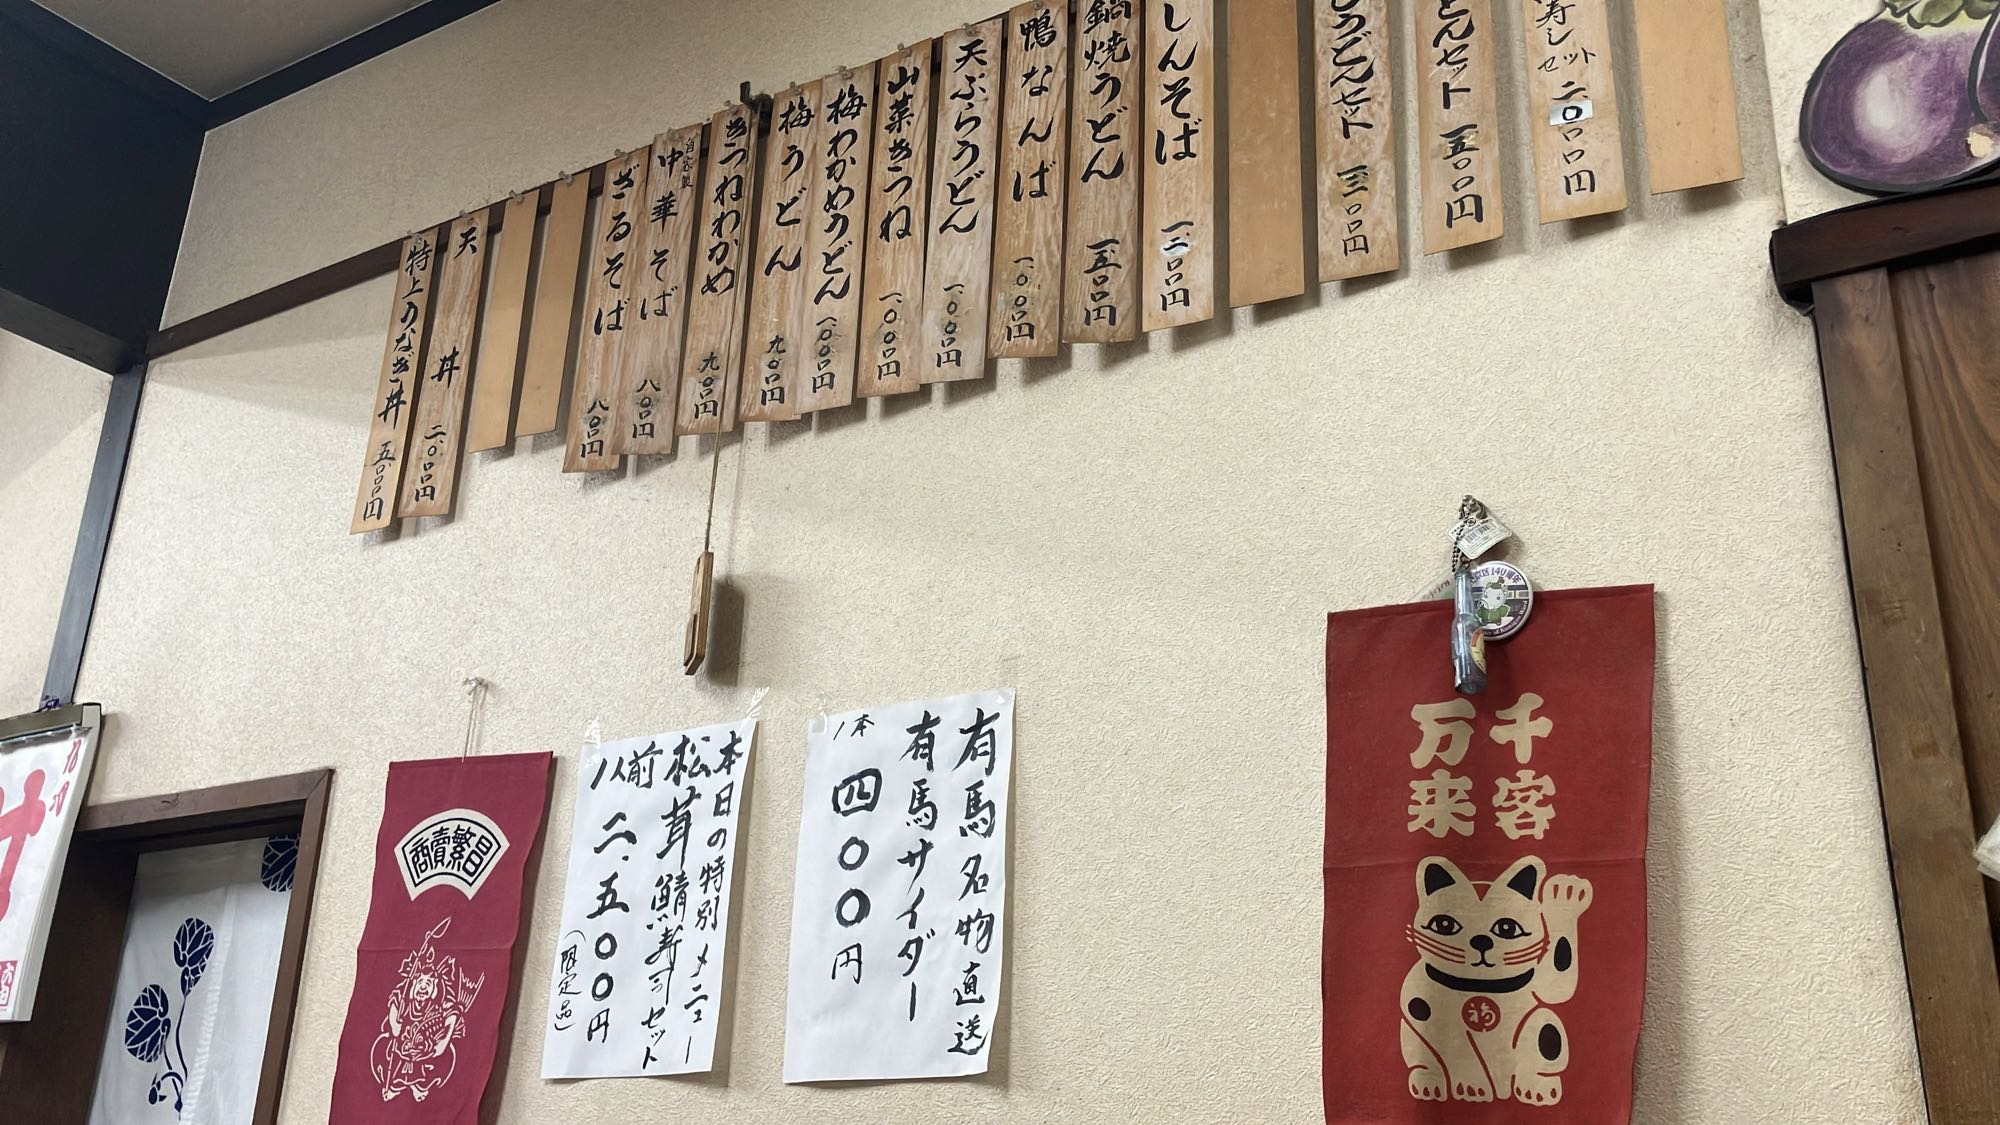 寿しセット 二、〇〇〇円
どんセット 一、五〇〇円
うどんセット 一、三〇〇円
しんそば 一、二〇〇円
鍋焼うどん 一、五〇〇円
鴨なんば 一、〇〇〇円
天ぷらうどん 一、〇〇〇円
山菜きつね 一、〇〇〇円
梅わかめうどん 一、〇〇〇円
梅うどん 九〇〇円
きつねわかめ 九〇〇円
自家製
中華そば 八〇〇円
ざるそば 八〇〇円
天丼 二、〇〇〇円
特上うなぎ丼 五、〇〇〇円
千客
万来
福
有馬名物直送
有馬サイダー
1本 四〇〇円
本日の特別メニュー
松茸鯖寿司セット
1人前 二、五〇〇円
(限定品)
商賣繁昌